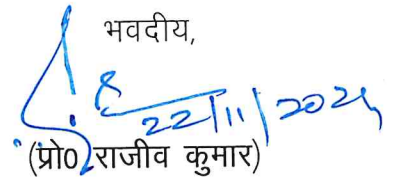 भवदीय,
22/11/202
(प्रो0 राजीव कुमार)